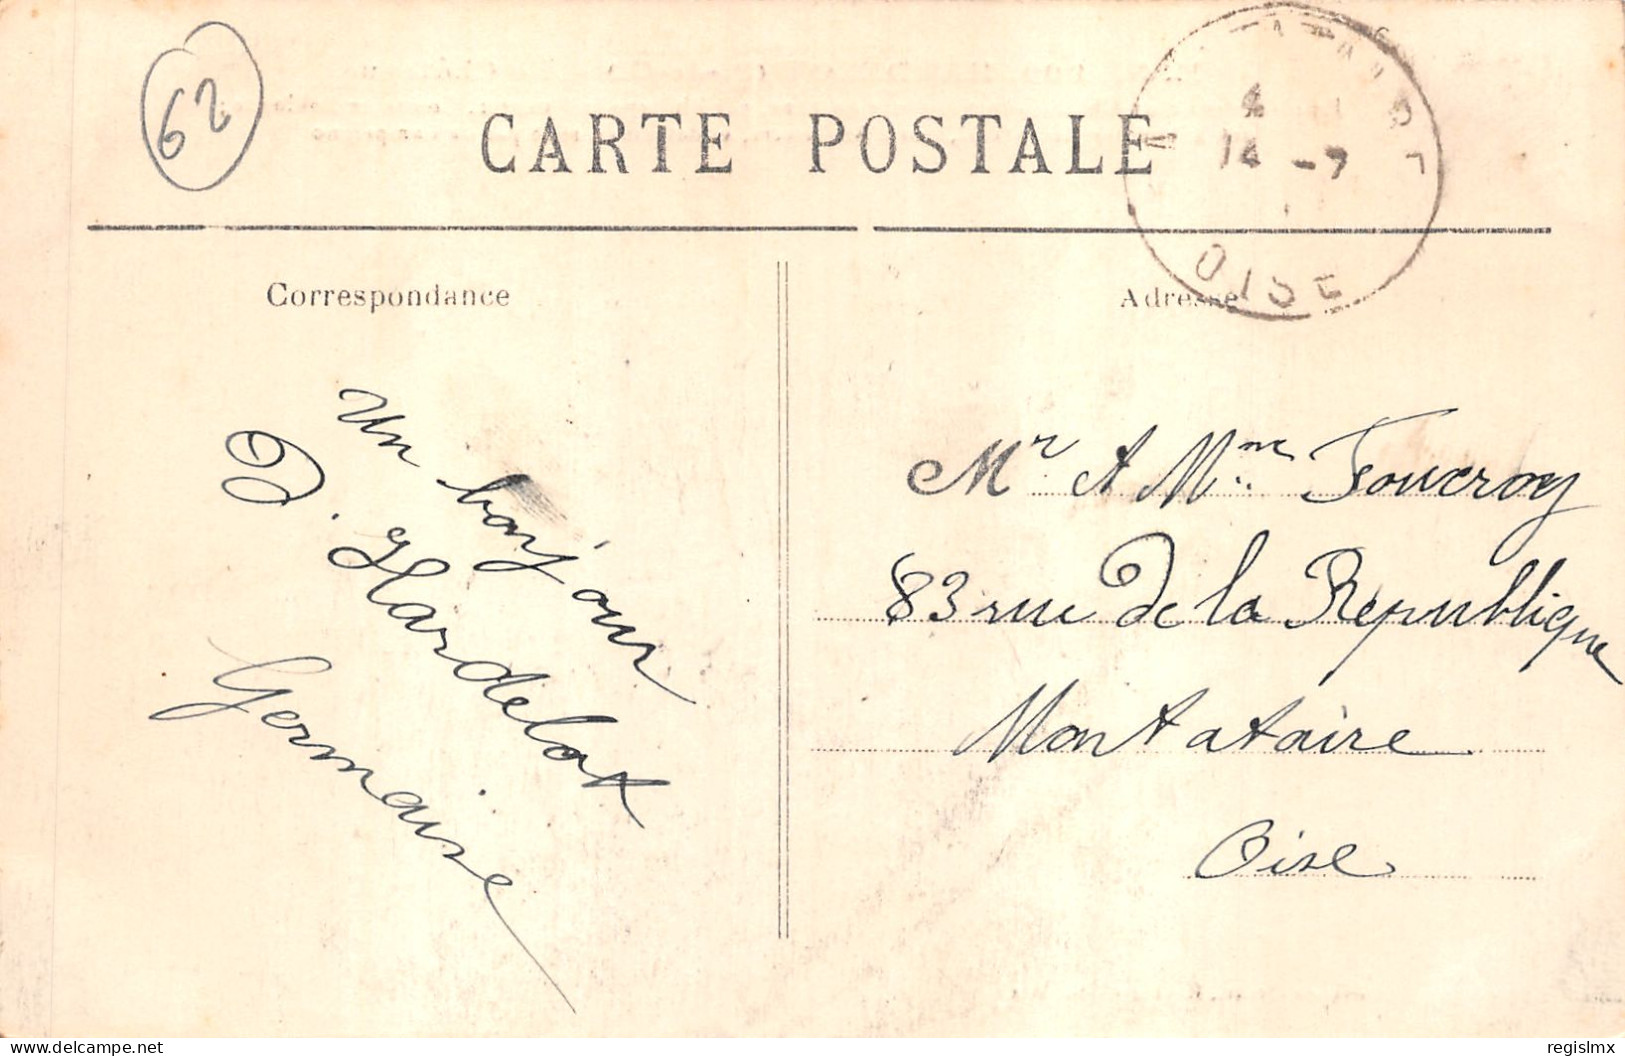 62
CARTE POSTALE
4
14 -7
OISE
Correspondance
Adresse
Un bonjour
D'Hardelot
Germaine
Mr et Mme Fourcroy
83 rue de la République
Montataire
Oise
www.delcampe.net
regislmx